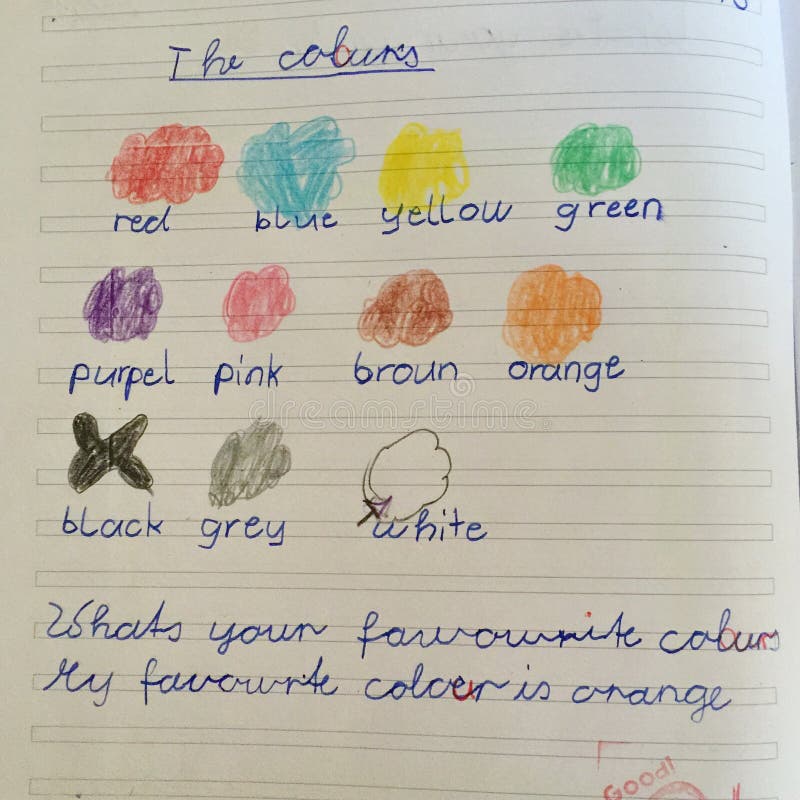 The colours
red blue yellow green
purpel pink broun orange
black grey white
Whats your favourite colours
My favourite colour is orange
Good!
dreamstime